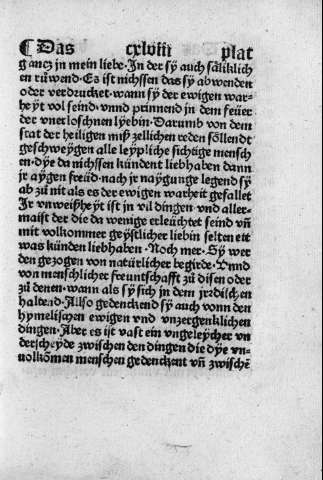 ¶ Das cxlviii plat
gancz in mein liebe. In der sÿ auch säliklich
en růwend. Es ist nichssen das sÿ abwenden
oder verdrucket. wann sÿ der ewigen war-
heÿt vol seind. vnnd prinnend in dem feüer
der vnerloschnen lÿebin. Darumb von dem
stat der heiligen miß zellichen reden söllendt
geschweÿgen alle leÿpliche sichtige mensch
en. dÿe da nichssen kündent liebhaben dann
jr aÿgen freüd. nach jr naÿgunge legend sÿ
ab zů nit als es der ewigen warheit gefallet
Jr vnweißheÿt ist in vil dingen. vnd aller-
maist der die da wenige erleüchtet seind vñ
mit volkommer geÿstlicher liebin selten ett
was künden liebhaben. Noch mer. Sÿ wer
den gezogen von natürlicher begirde. Vnnd
von menschlicher freuntschafft zů disen oder
zů denen. wann als sÿ sich in dem jrzdischen
haltend. Also gedenckend sÿ auch vonn den
hymelischen ewigen vnd vnzergenklichen
dingen. Aber es ist vast ein vngeleÿcher vn
derscheÿde zwischen den dingen die dÿe vn-
volkõmen menschen gedenckent vñ zwischẽ